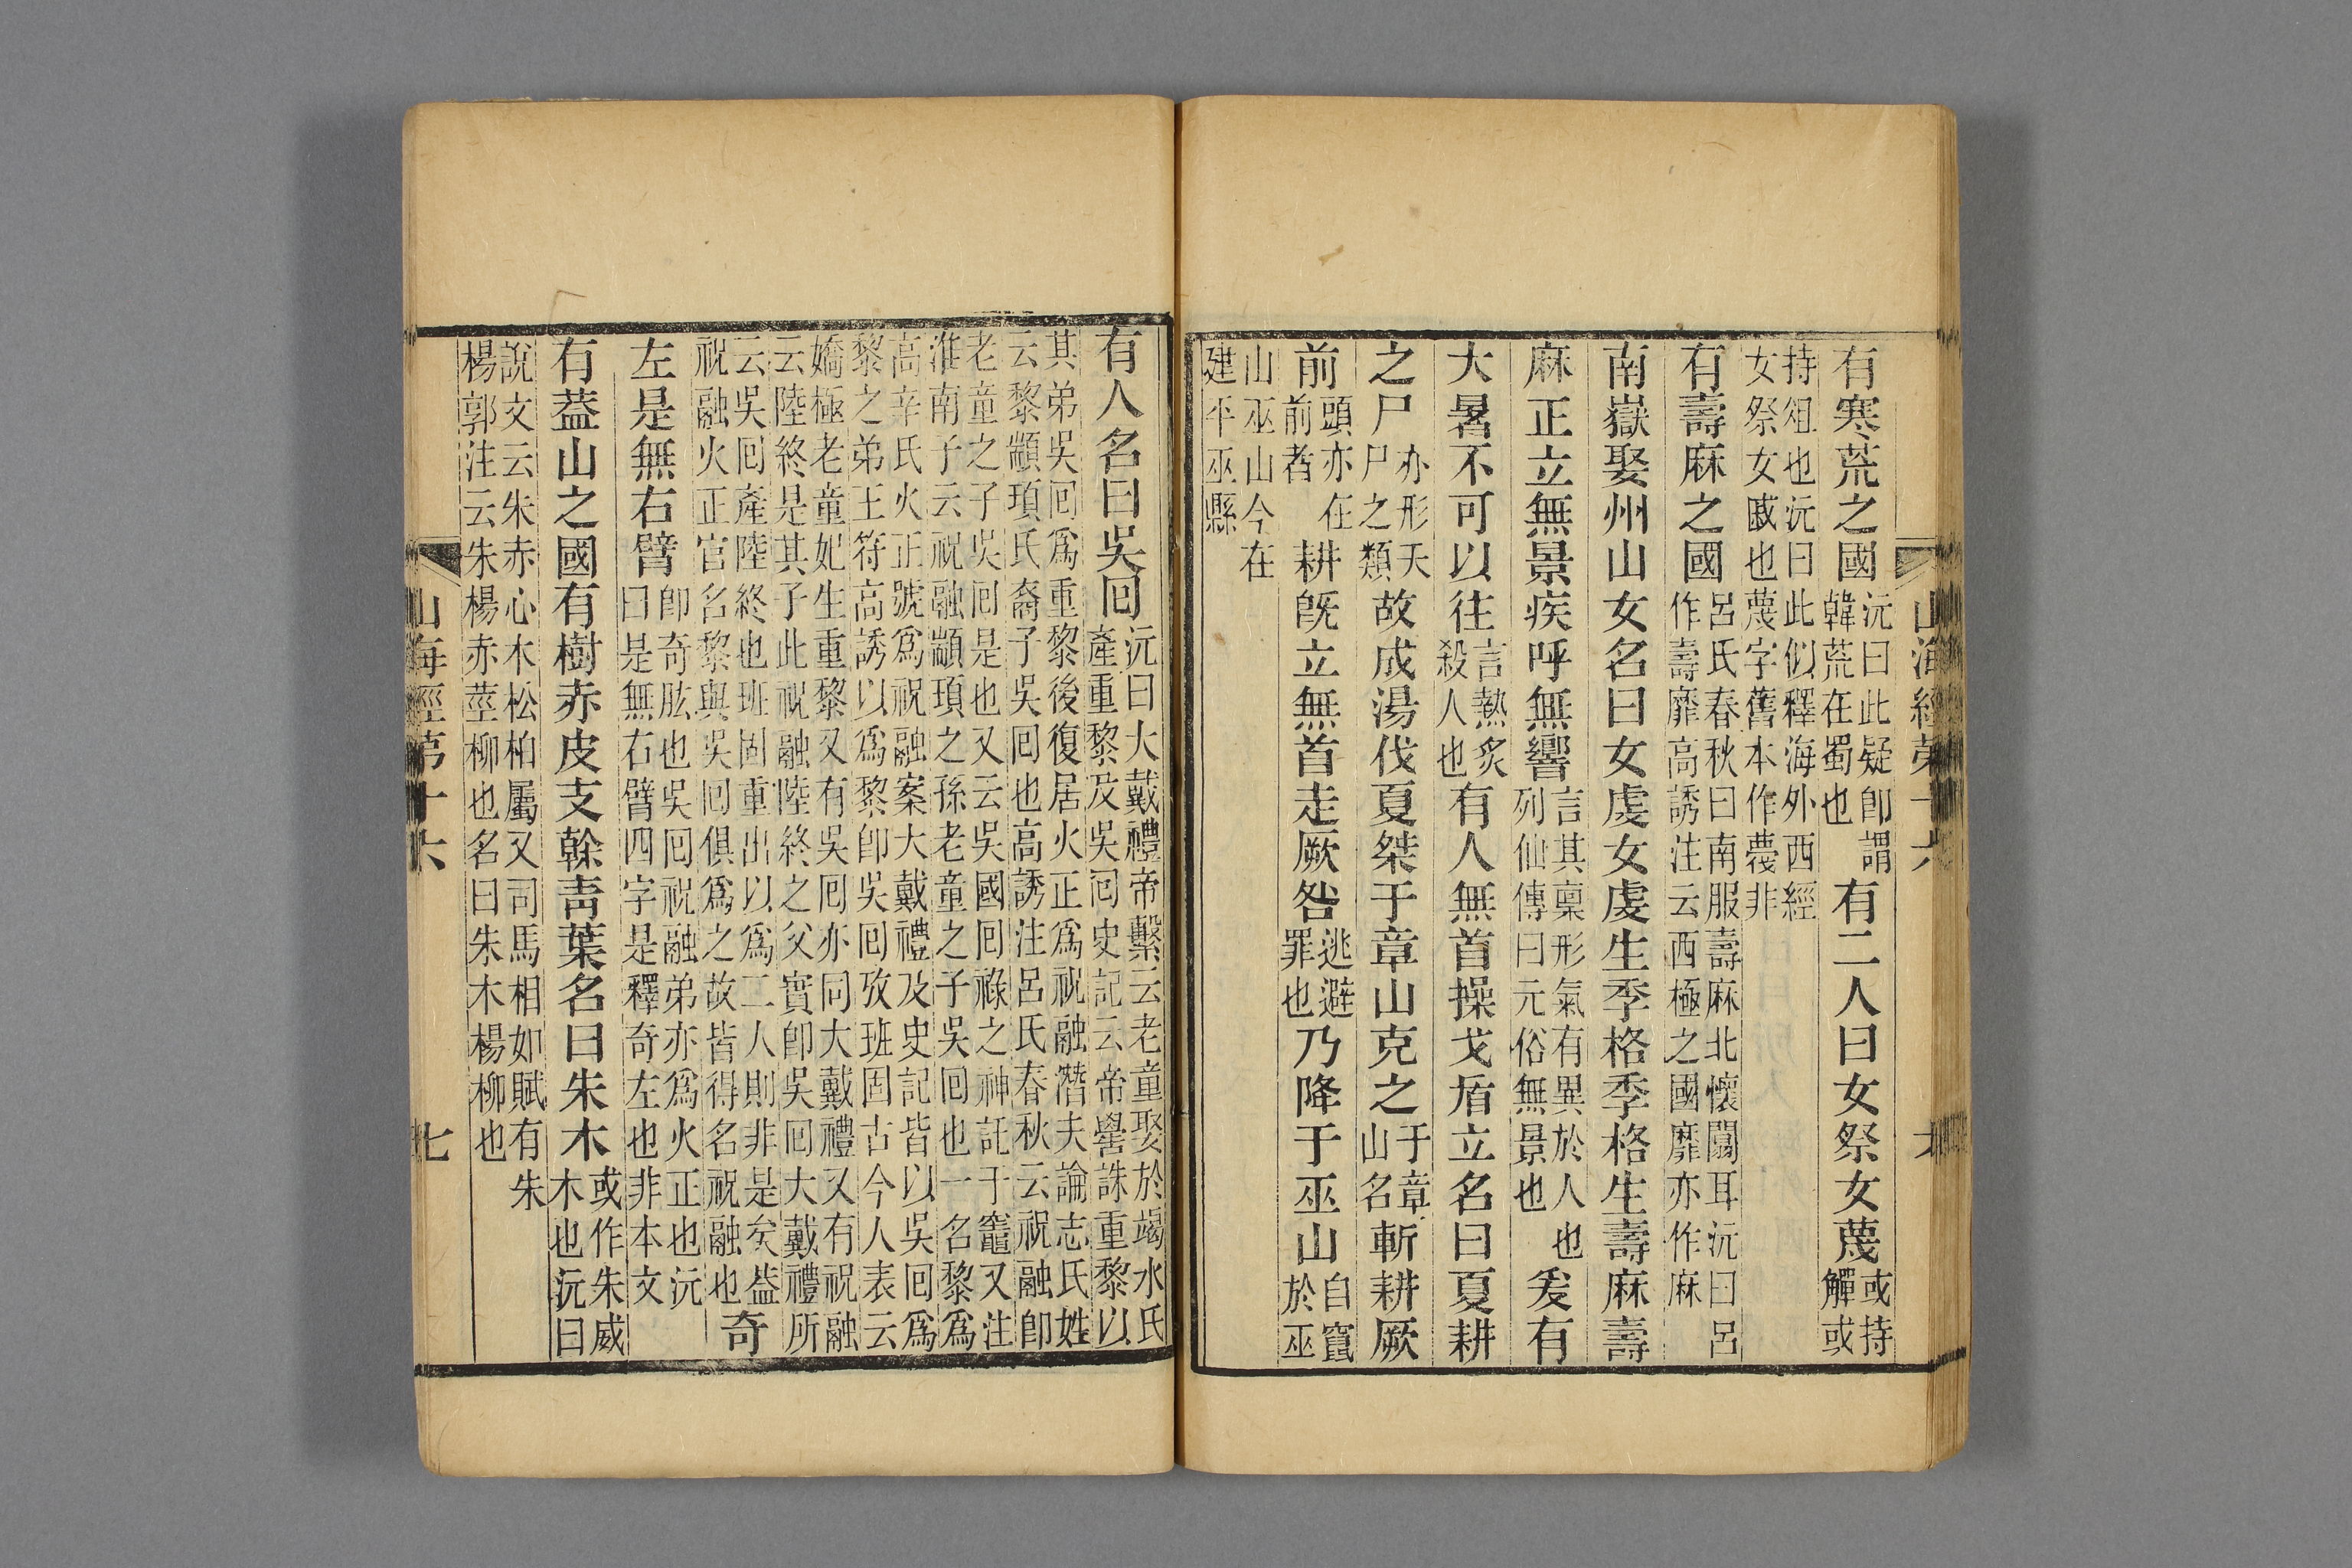 山海經第十六 六
有寒荒之國沅曰此疑卽謂韓荒在蜀也有二人曰女祭女薎或持觶或
持俎也沅曰此似釋海外西經
女祭女戚也薎字舊本作薎非
有壽麻之國呂氏春秋曰南服壽麻北懷闟耳沅曰呂作壽靡高誘注云西極之國靡亦作麻
南嶽娶州山女名曰女虔女虔生季格季格生壽麻壽
麻正立無景疾呼無響言其稟形氣有異於人也列仙傳曰元俗無景也爰有
大暑不可以往言熱炙殺人也有人無首操戈盾立名曰夏耕
之尸亦形天尸之類故成湯伐夏桀于章山克之于章山名斬耕厥
前頭亦在前者耕旣立無首走厥咎逃避罪也乃降于巫山自竄於巫
山巫山今在
建平巫縣
有人名曰吳囘沅曰大戴禮帝繫云老童娶於竭水氏產重黎及吳囘史記云帝嚳誅重黎以
其弟吳囘爲重黎後復居火正爲祝融潛夫論志氏姓
云黎顓頊氏裔子吳囘也高誘注呂氏春秋云祝融卽
老童之子吳囘是也又云吳國囘祿之神託于竈又注
淮南子云祝融顓頊之孫老童之子吳囘也一名黎爲
高辛氏火正號爲祝融案大戴禮及史記皆以吳囘爲
黎之弟王符高誘以爲黎卽吳囘攷班固古今人表云
嬌極老童妃生重黎又有吳囘亦同大戴禮又有祝融
云陸終是其子此祝融陸終之父實卽吳囘大戴禮所
云吳囘產陸終也班固重出以爲二人則非是矣蓋祝融火正官名黎與吳囘俱爲之故皆得名祝融也奇
左是無右臂卽奇肱也吳囘祝融弟亦爲火正也沅曰是無右臂四字是釋奇左也非本文
有蓋山之國有樹赤皮支榦靑葉名曰朱木或作朱威木也沅曰
說文云朱赤心木松柏屬又司馬相如賦有朱
楊郭注云朱楊赤莖柳也名曰朱木楊柳也
山海經第十六 七